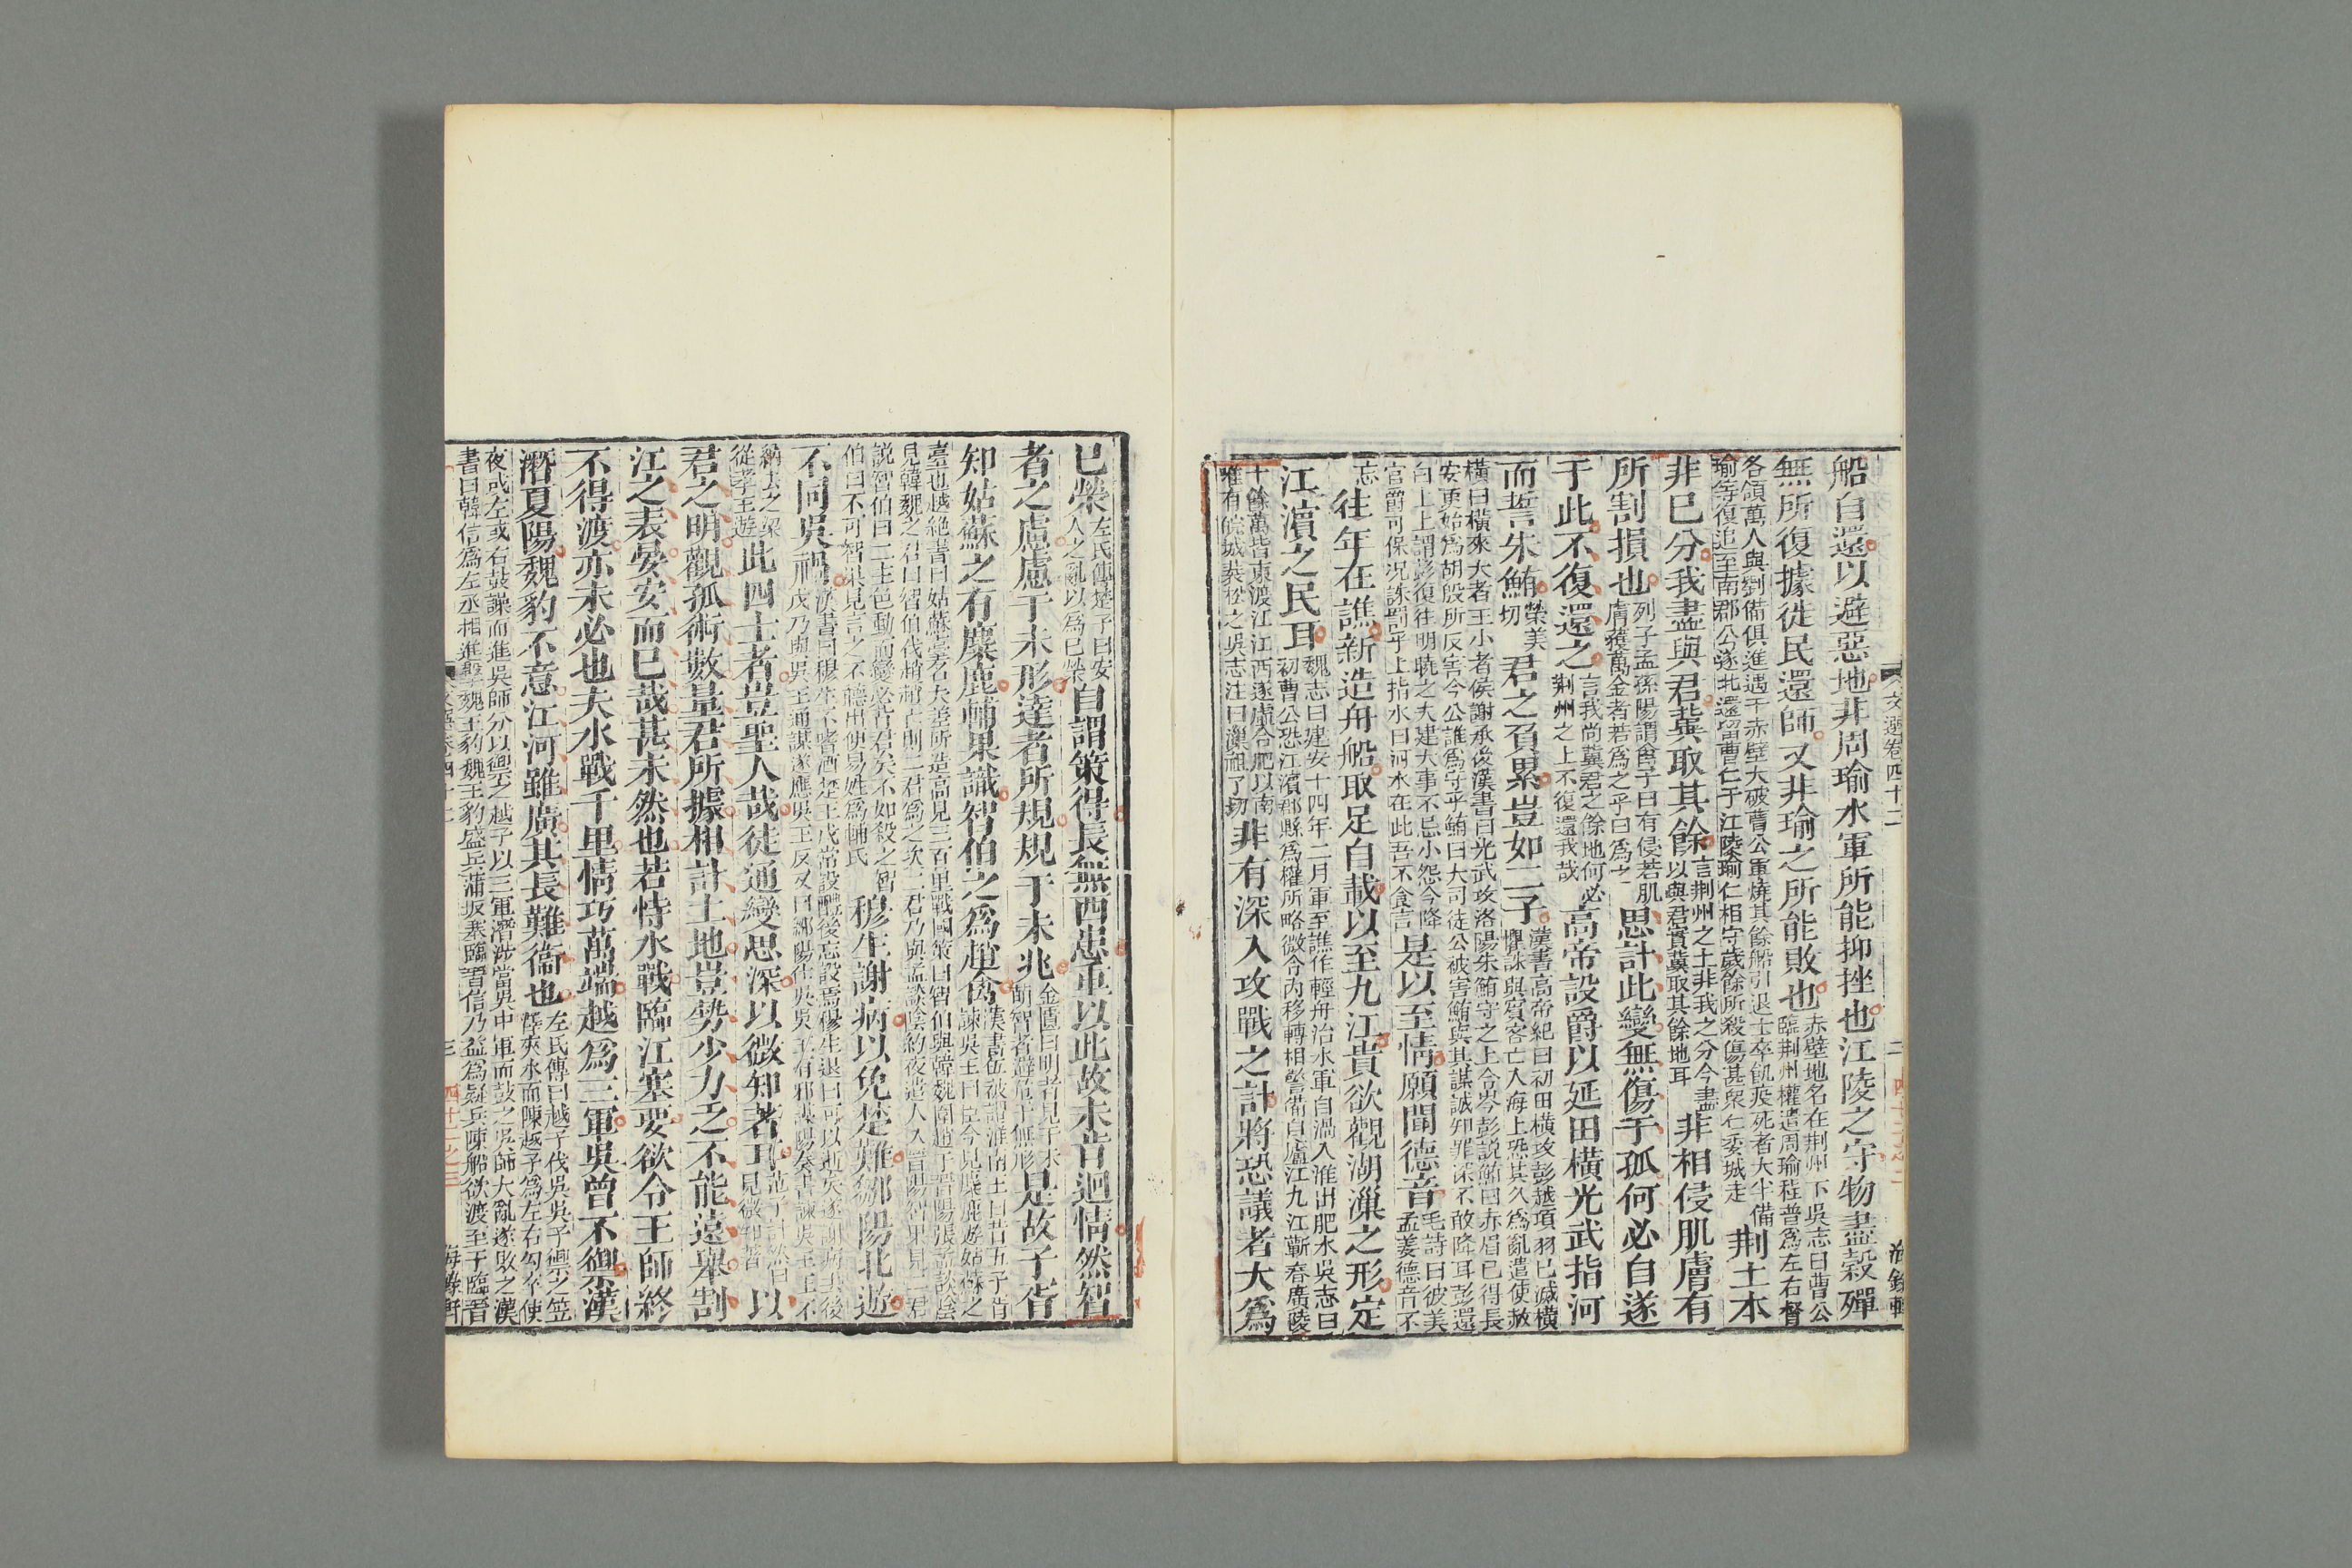 船自還以避惡地非周瑜水軍所能抑挫也江陵之守物盡穀殫
無所復據徙民還師又非瑜之所能敗也赤壁地名在荆州下吳志曰曹公臨荆州權遣周瑜程普爲左右督
各領萬人與劉備俱進遇于赤壁大破曹公軍燒其餘船引退士卒飢疫死者大半備瑜等復追至南郡公遂北還留曹仁于江陵瑜仁相守歲餘所殺傷甚衆仁委城走荆土本
非巳分我盡與君冀取其餘言荆州之土非我之分今盡以與君實冀取其餘地耳非相侵肌膚有
所割損也列子孟孫陽謂禽子曰有侵若肌膚獲萬金者若爲之乎曰爲之思計此變無傷于孤何必自遂
于此不復還之言我尚冀君之餘地何必荆州之上不復還我哉高帝設爵以延田橫光武指河
而誓朱鮪榮美切君之負累豈如二子漢書高帝紀曰初田橫攻彭越項羽已滅橫懼誅與賓客亡入海上恐其久爲亂遣使赦
橫曰橫來大者王小者侯謝承後漢書曰光武攻洛陽朱鮪守之上令岑彭説鮪曰赤眉已得長安更始爲胡殷所反害今公誰爲守乎鮪曰大司徒公被害鮪與其謀誠知罪深不敢降耳彭還
白上上謂彭復往明曉之夫建大事不忌小怨今降官爵可保况誅罰乎上指水曰河水在此吾不食言是以至情願聞德音毛詩曰彼美孟姜德音不
忘往年在譙新造舟船取足自載以至九江貴欲觀湖漅之形定
江濱之民耳魏志曰建安十四年二月軍至譙作輕舟治水軍自渦入淮出肥水吳志曰初曹公恐江濱郡縣爲權所略微令内移轉相警備自廬江九江蘄春廣陵
十餘萬皆東渡江江西遂虛合肥以南唯有皖城裴松之吳志注曰漅祖了切非有深入攻戰之計將恐議者大爲
文選卷四十二
二
四十二之二
海録軒
巳榮左氏傳楚子曰安人之亂以爲巳榮自謂策得長無西患重以此故未肯迴情然智
者之慮慮于未形達者所規規于未兆金匱曰明者見于未萌智者避危于無形是故子胥
知姑蘇之有麋鹿輔果識智伯之爲趙禽漢書伍被謂淮南王曰昔伍子胥諫吳王曰臣今見麋鹿遊姑蘇之
臺也越絶書曰姑蘇臺名夫差所造高見三百里戰國策曰智伯與韓魏圍趙于晉陽張孟談陰見韓魏之君曰智伯伐趙趙亡則二君爲之次二君乃與孟談陰約夜遣人入晉陽智果見二君
説智伯曰二主色動而變必背君矣不如殺之智伯曰不可智果見言之不聽出便易姓爲輔氏穆生謝病以免楚難鄒陽北遊
不同吳禍漢書曰穆生不嗜酒楚王戊常設醴後忘設焉穆生退曰可以逝矣遂謝病去後戊乃與吳王通謀遂應吳王反又曰鄒陽仕吳吳王有邪謀陽奏書諫吳王王不
納去之梁從孝王遊此四士者豈聖人哉徒通變思深以微知著耳范子計然曰見微知著以
君之明觀孤術數量君所據相計土地豈勢少力乏不能遠舉割
江之表晏安而已哉甚未然也若恃水戰臨江塞要欲令王師終
不得渡亦未必也夫水戰千里情巧萬端越爲三軍吳曾不禦漢
潛夏陽魏豹不意江河雖廣其長難衞也左氏傳曰越子伐吳吳子禦之笠澤夾水而陳越子爲左右勾卒使
夜或左或右鼓譟而進吳師分以禦之越子以三軍潛涉當吳中軍而鼓之吳師大亂遂敗之漢書曰韓信爲左丞相進擊魏王豹魏王豹盛兵蒲坂塞臨晉信乃益爲疑兵陳船欲渡至于臨晉
三
四十二之三
海錄軒